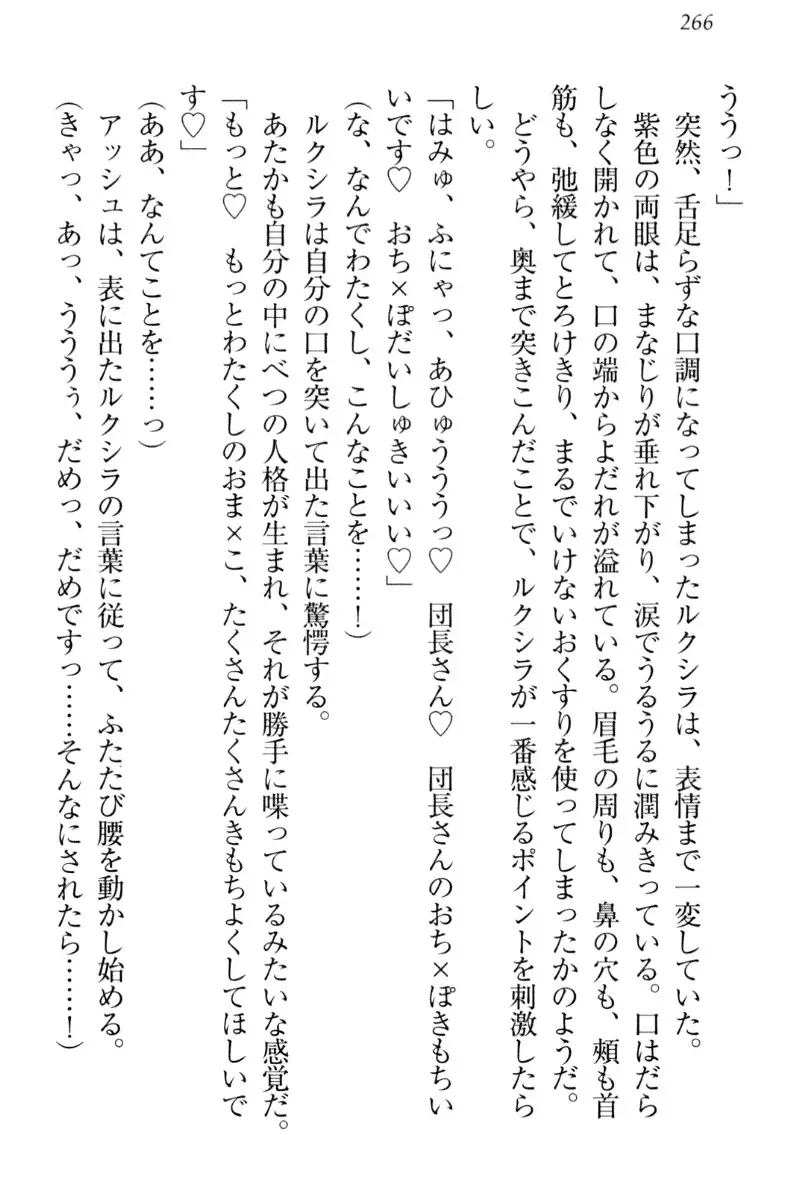 266
ううっ！」
　突然、舌足らずな口調になってしまったルクシラは、表情まで一変していた。
　紫色の両眼は、まなじりが垂れ下がり、涙でうるうるに潤みきっている。口はだら
しなく開かれて、口の端からよだれが溢れている。眉毛の周りも、鼻の穴も、頰も首
筋も、弛緩してとろけきり、まるでいけないおくすりを使ってしまったかのようだ。
　どうやら、奥まで突きこんだことで、ルクシラが一番感じるポイントを刺激したら
しい。
「はみゅ、ふにゃっ、あひゅうううっ♡　団長さん♡　団長さんのおち×ぽきもちい
いです♡　おち×ぽだいしゅきいいい♡」
（な、なんでわたくし、こんなことを……！）
　ルクシラは自分の口を突いて出た言葉に驚愕する。
　あたかも自分の中にべつの人格が生まれ、それが勝手に喋っているみたいな感覚だ。
「もっと♡　もっとわたくしのおま×こ、たくさんたくさんきもちよくしてほしいで
す♡」
（ああ、なんてことを……っ）
　アッシュは、表に出たルクシラの言葉に従って、ふたたび腰を動かし始める。
（きゃっ、あっ、うううぅ、だめっ、だめですっ……そんなにされたら……！）